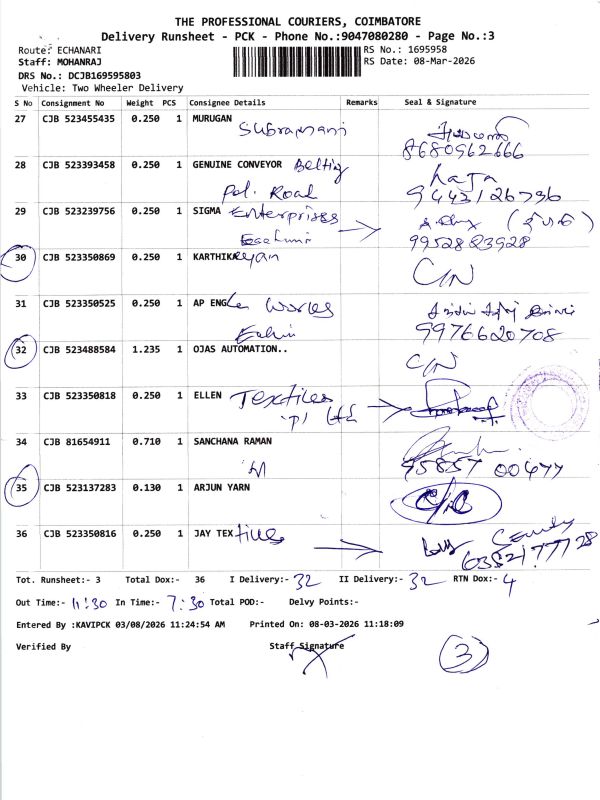 THE PROFESSIONAL COURIERS, COIMBATORE
Delivery Runsheet - PCK - Phone No.:9047080280 - Page No.:3
Route: ECHANARI
RS No.: 1695958
Staff: MOHANRAJ
RS Date: 08-Mar-2026
DRS No.: DCJB169595803
Vehicle: Two Wheeler Delivery
S No Consignment No Weight PCS Consignee Details Remarks Seal & Signature
27 CJB 523455435 0.250 1 MURUGAN
Subramani
8680962666
28 CJB 523393458 0.250 1 GENUINE CONVEYOR Belting
Pol. Road
Raja
9443126736
29 CJB 523239756 0.250 1 SIGMA Enterprises
9952883928
30 CJB 523350869 0.250 1 KARTHIKReyan
C/N
31 CJB 523350525 0.250 1 AP ENG Works
9976620708
32 CJB 523488584 1.235 1 OJAS AUTOMATION..
C/N
33 CJB 523350818 0.250 1 ELLEN Textiles
P) Ltd
34 CJB 81654911 0.710 1 SANCHANA RAMAN
95857 00477
35 CJB 523137283 0.130 1 ARJUN YARN
36 CJB 523350816 0.250 1 JAY TEXtiles
6382177728
Tot. Runsheet:- 3 Total Dox:- 36 I Delivery:- 32 II Delivery:- 32 RTN Dox:- 4
Out Time:- 11:30 In Time:- 7:30 Total POD:- Delvy Points:-
Entered By :KAVIPCK 03/08/2026 11:24:54 AM Printed On: 08-03-2026 11:18:09
Verified By Staff Signature
3